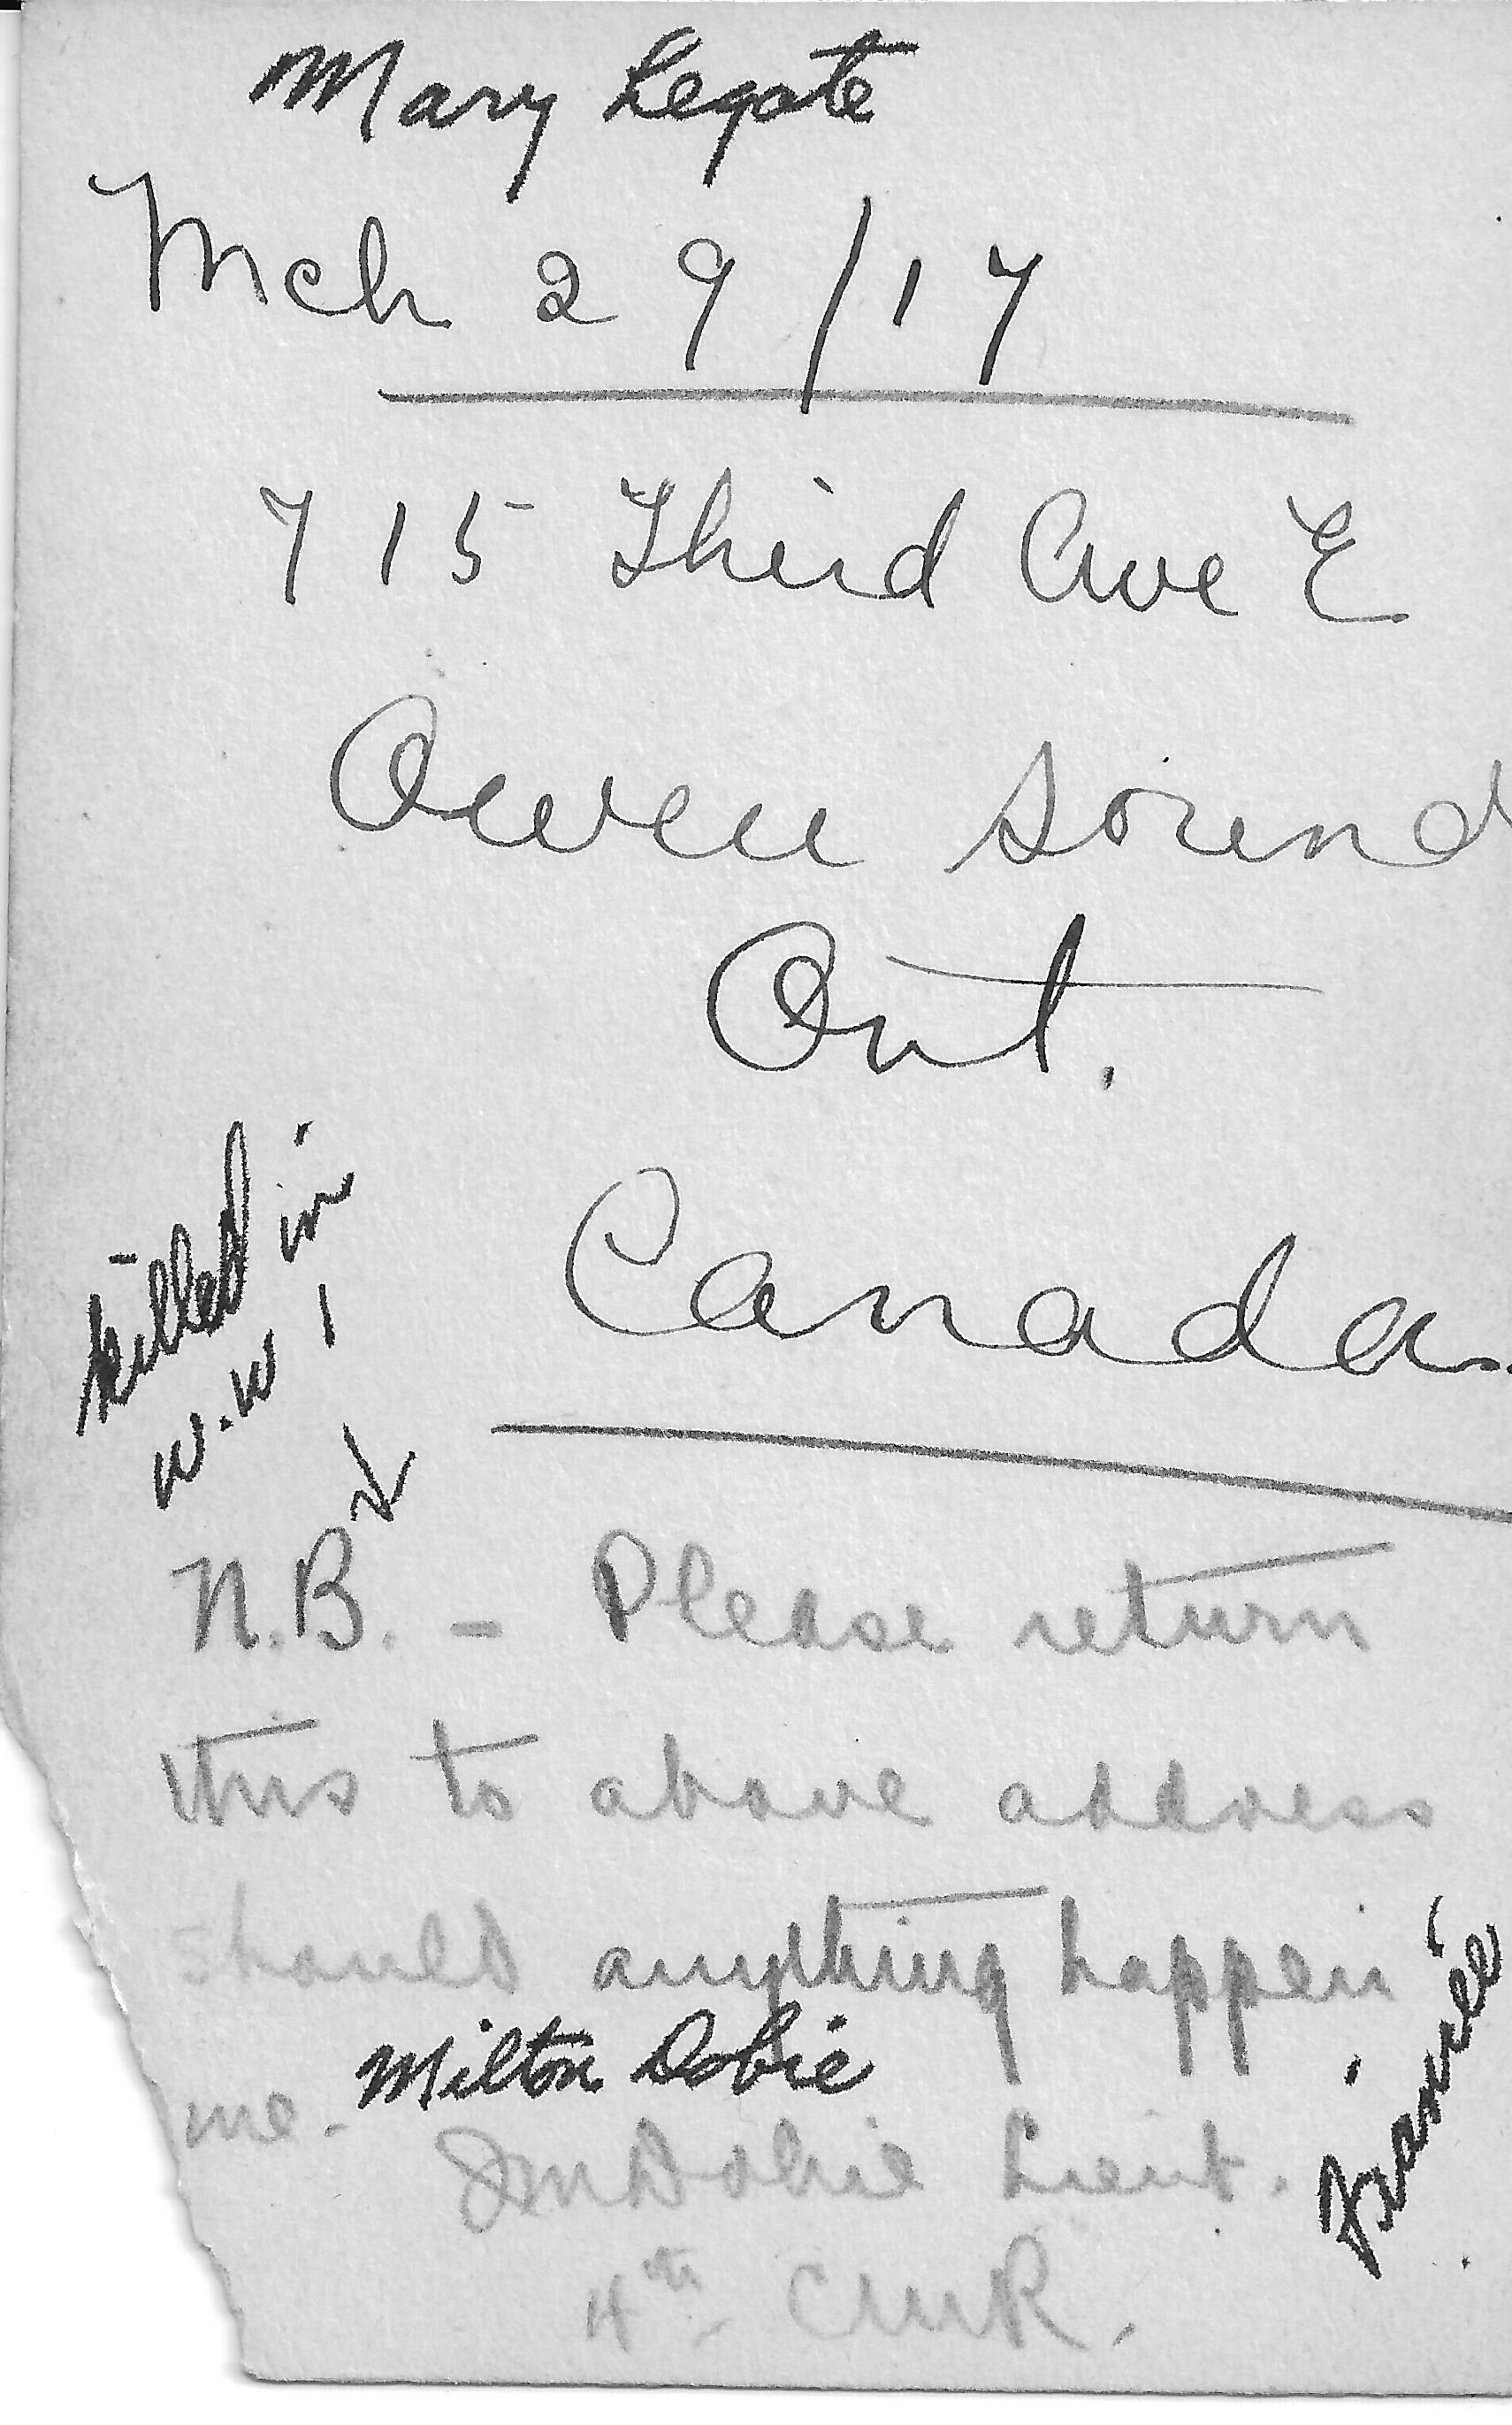 Mary Legate
Mch 29/17
715 Third Ave E
Owen Sound
Ont.
Canada.
killed in
W.W 1
N.B. - Please return
this to above address
should anything happen
me.
Milton Dobie
JMDobie Lieut.
4th CMR.
Fiancée